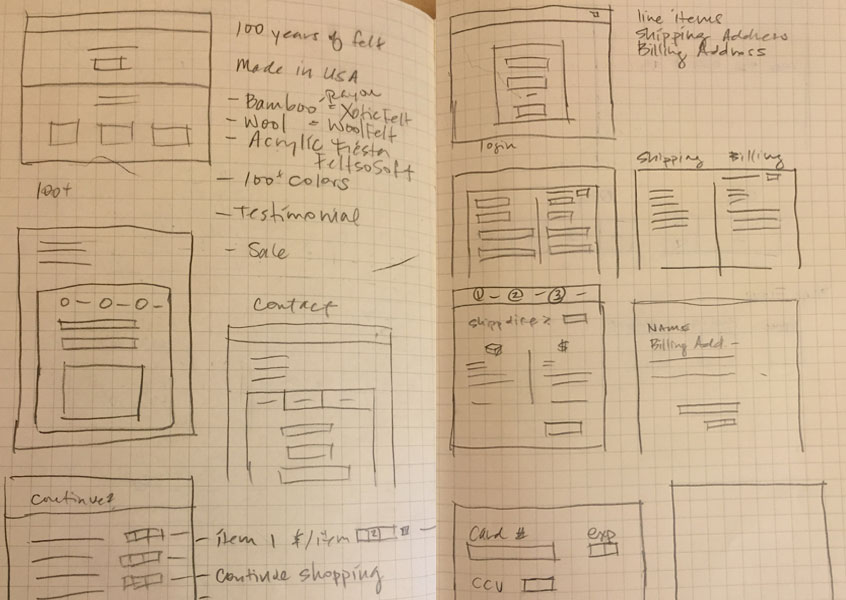 100 years of felt
Made in USA
- Bamboo - Rayon = XoticFelt
- Wool = WoolFelt
- Acrylic Fiesta
FeltsoSoft
- 100+ Colors
- Testimonial
- Sale
100+
Contact
Continue?
- item 1 $/item 2
- Continue shopping
line items
Shipping Address
Billing Address
login
Shipping Billing
1 - 2 - 3 -
$
NAME
Billing Add. -
Card # exp
CCV